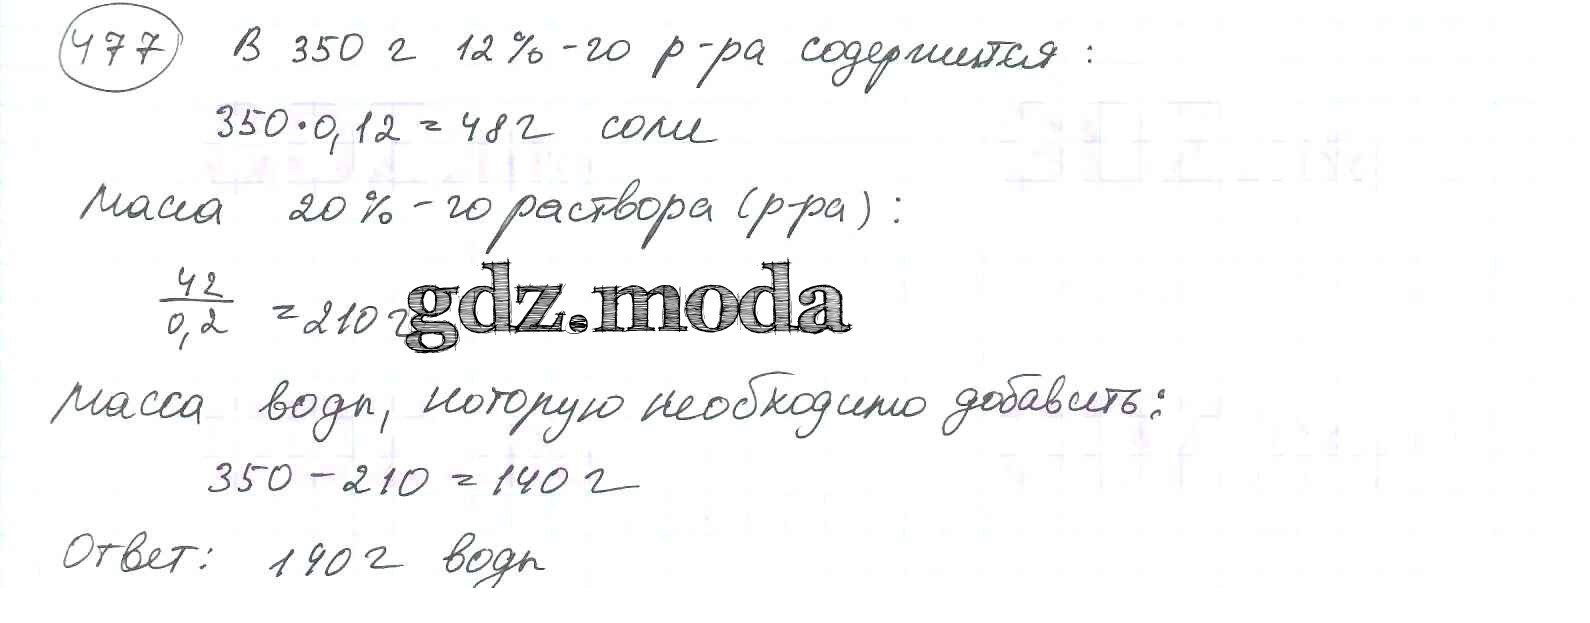 477 В 350 г 12%-го р-ра содержится:
350·0,12=48г соли
Масса 20%-го раствора (р-ра):
42
0,2
=210г
gdz.moda
Масса воды, которую необходимо добавить:
350-210=140г
Ответ: 140г воды